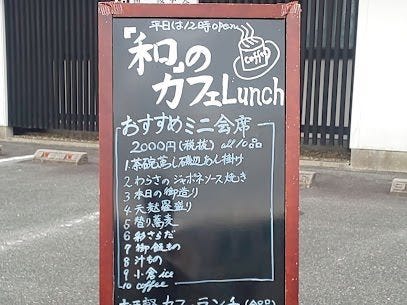 平日は12時open
「和」の
カフェLunch
coffee
おすすめミニ会席
2000円(税抜) all 10品
1 茶碗蒸し 磯辺あん掛け
2 わらさのジャポネソース焼き
3 本日の御造り
4 天麩羅盛り
5 替り蕎麦
6 彩さらだ
7 御飯もの
8 汁もの
9 小倉ice
10 coffee
カフェランチ